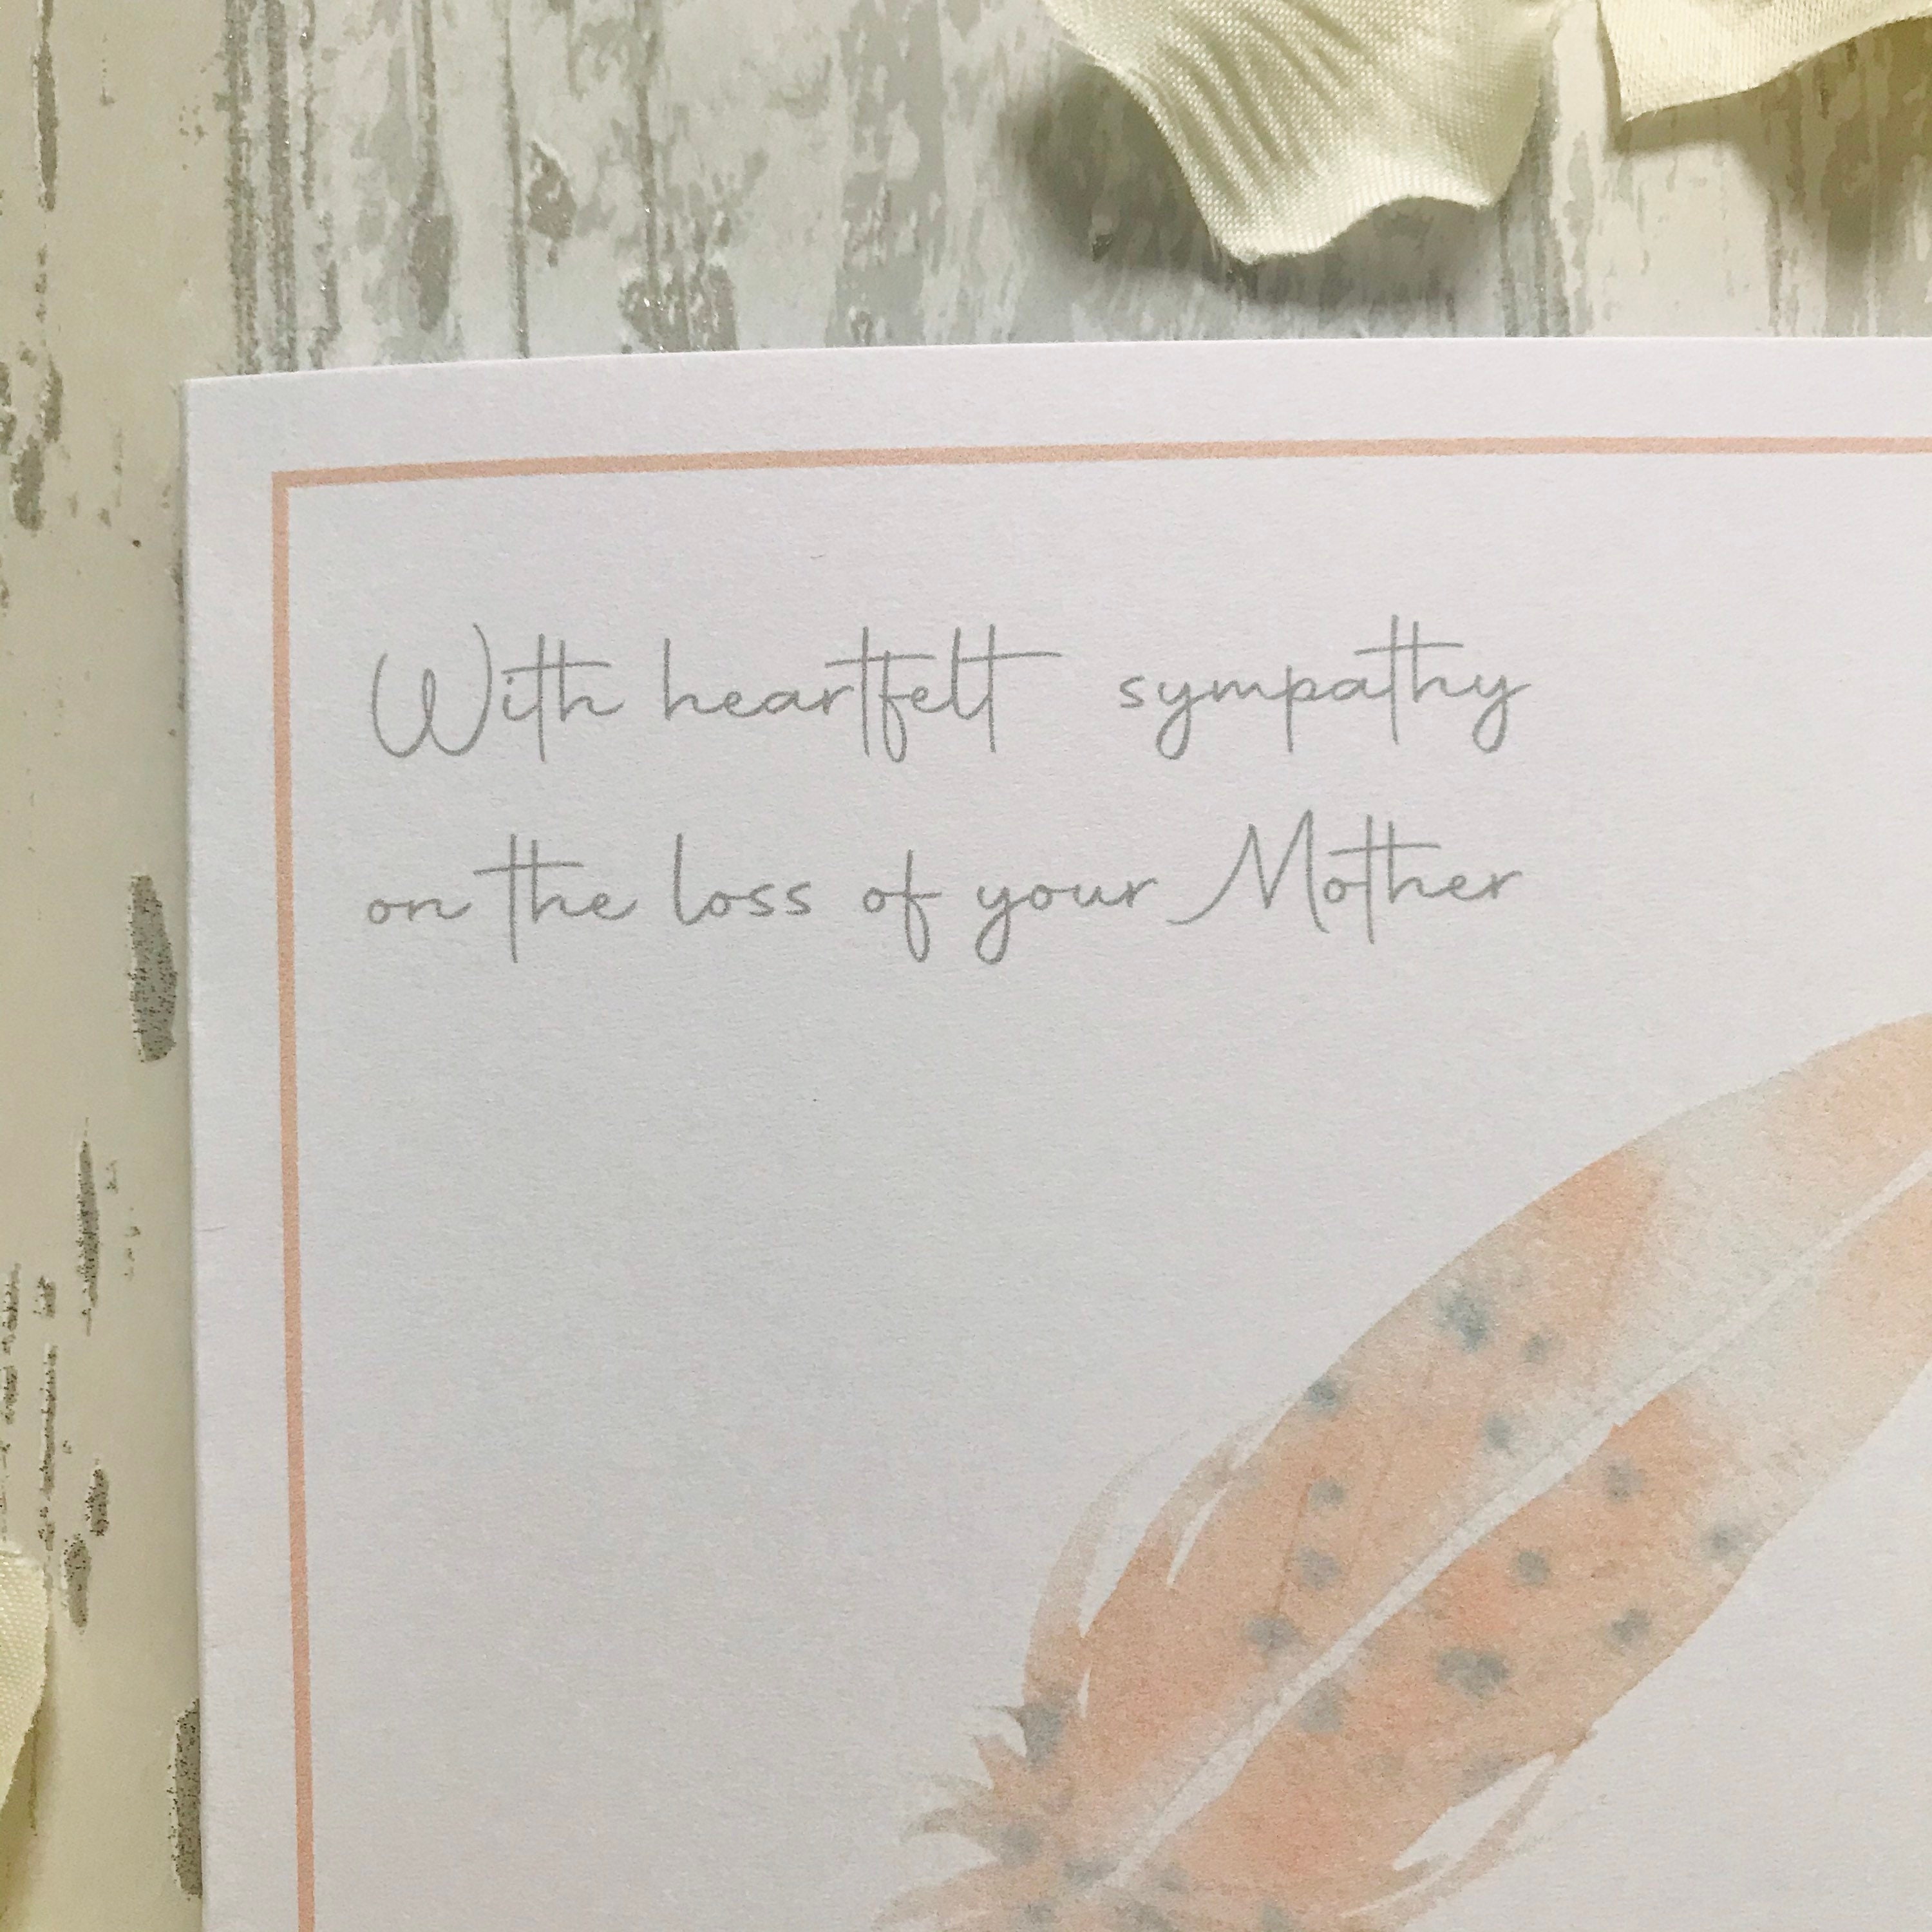 With heartfelt sympathy
on the loss of your Mother